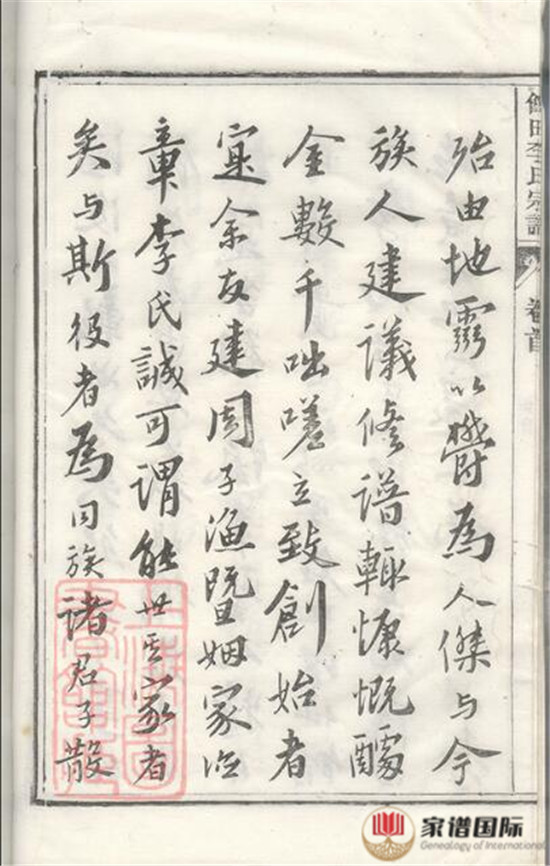 殆由地靈以鬱為人傑与今
族人建議修譜輙慷慨醵
金數千咄嗟立致創始者
寔余友建周子漁暨姻家治
章李氏誠可謂能世其家者
矣与斯役者為同族諸君子散
田李氏宗譜
卷首
家谱国际
Genealogy of International